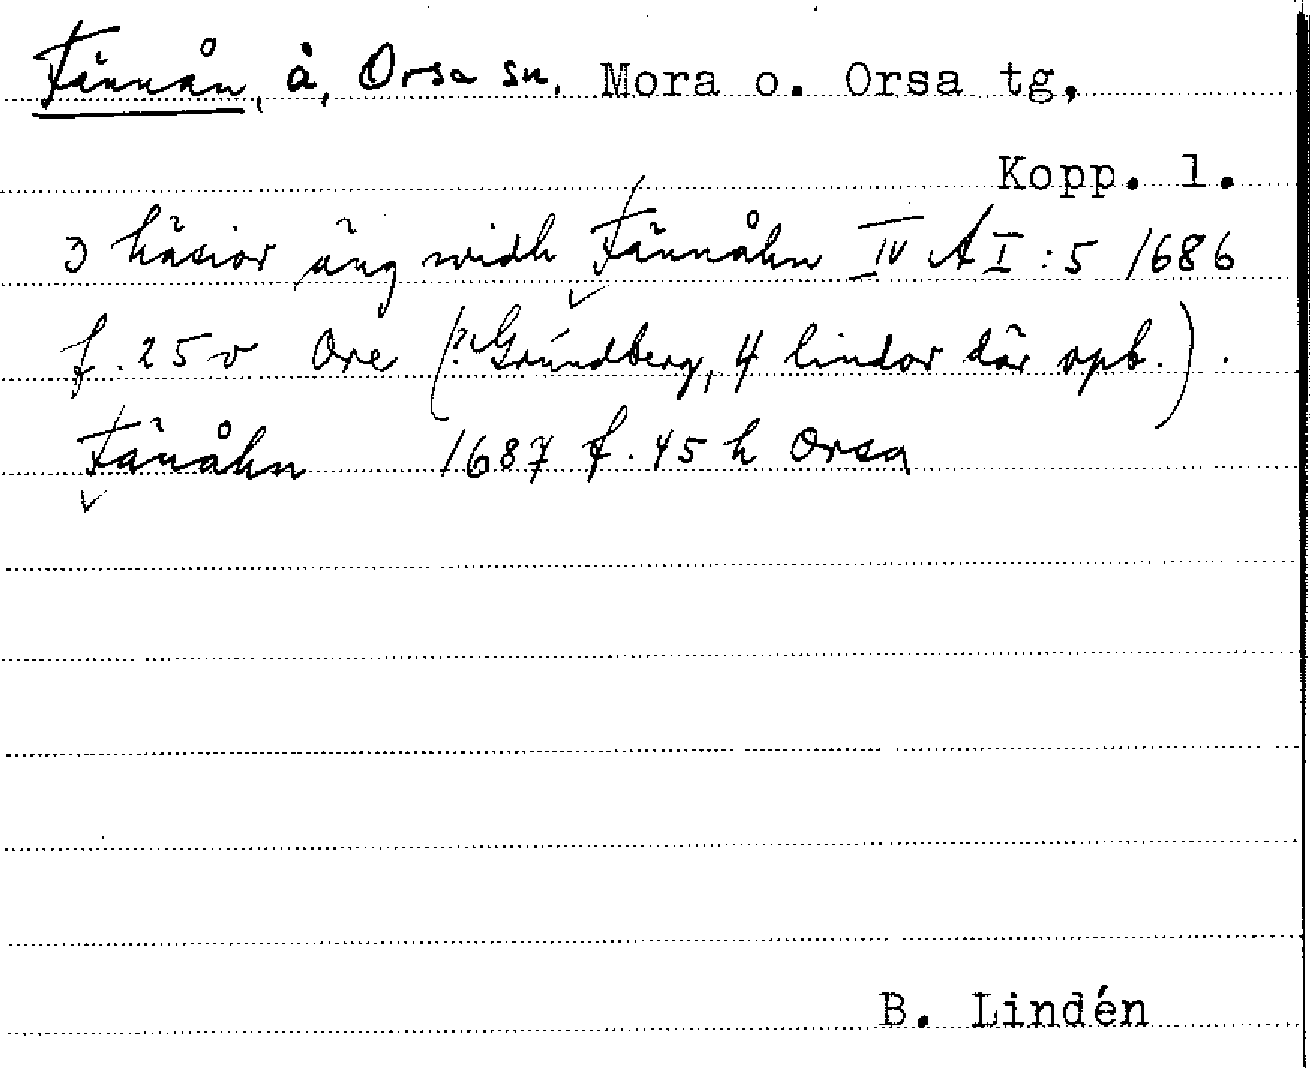 Fännån, å, Orsa sn, Mora o. Orsa tg,
Kopp. l.
3 häsior äng widh Fännåhn IV A I:5 1686
f. 25 v Ore (?: Grundberg, 4 lindor där opb.).
Fänåhn 1687 f. 45 h Orsa
B. Lindén